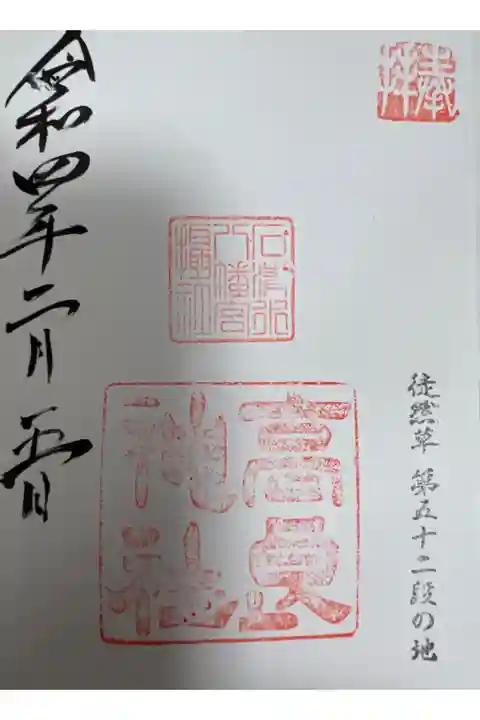 奉拝
徒然草 第五十二段の地
石清水
八幡宮
摂社
高良
神社
令和四年二月五日